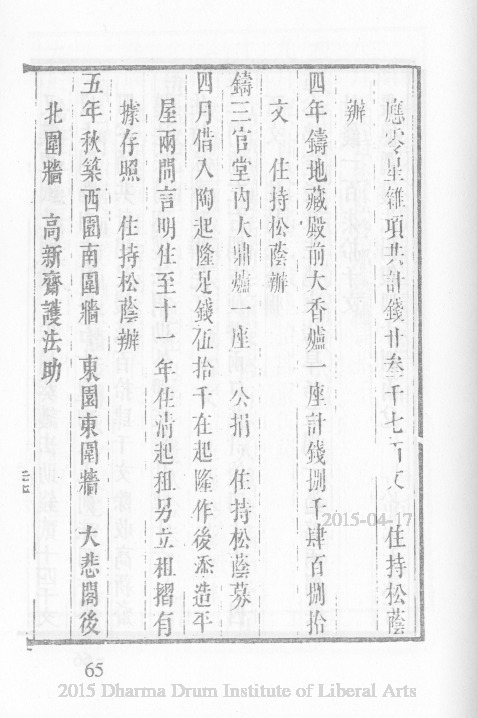 應零星雜項共計錢廿叁千七百文　住持松蔭
辦
四年鑄地藏殿前大香爐一座計錢捌千肆百捌拾
文　住持松蔭辦
鑄三官堂內大鼎爐一座　公捐　住持松蔭募
四月借入陶起隆足錢伍拾千在起隆作後添造平
屋兩間言明住至十一年住滿起租另立租摺有
據存照　住持松蔭辦
五年秋築西園南圍牆　東園東圍牆　大悲閣後
北圍牆　高新齋護法助
65
2015-04-17
2015 Dharma Drum Institute of Liberal Arts